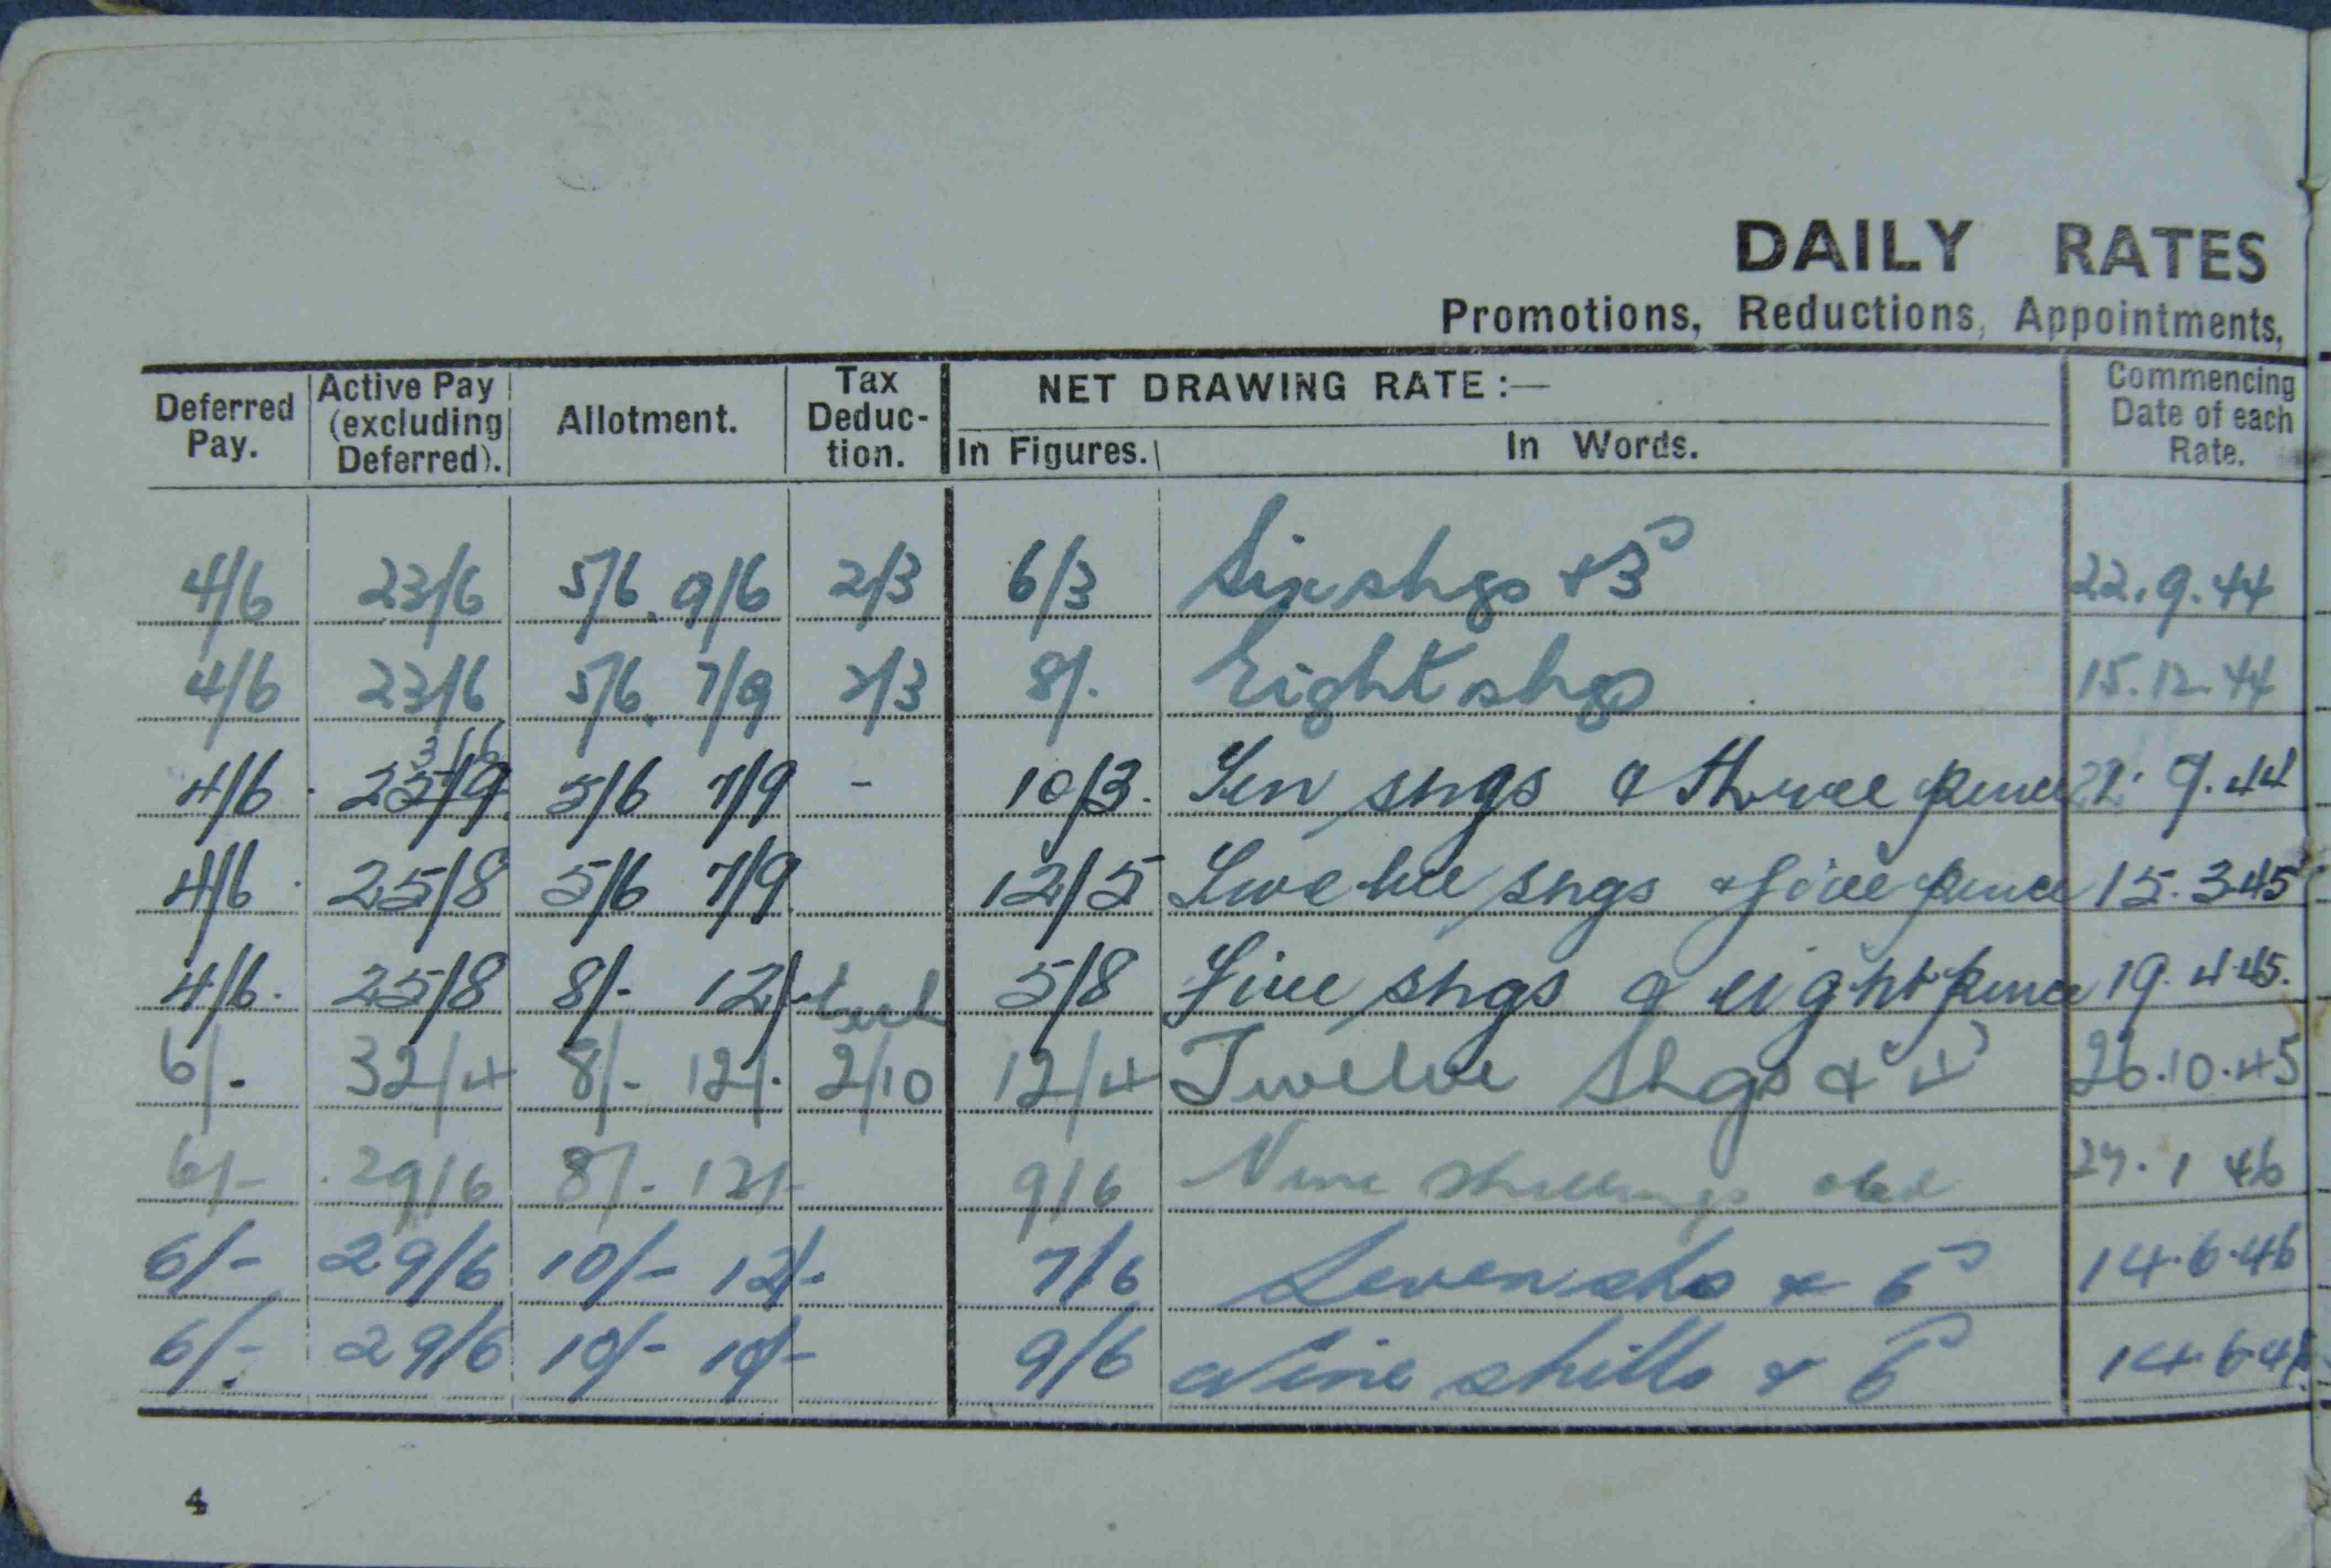 DAILY RATES
Promotions, Reductions, Appointments,
Deferred Pay. Active Pay (excluding Deferred). Allotment. Tax Deduc-tion. NET DRAWING RATE:— In Figures. In Words. Commencing Date of each Rate.
4/6 23/6 5/6. 9/6 2/3 6/3 Six shgs + 3ᴰ 22.9.44
4/6 23/6 5/6. 7/9 2/3 8/. Eight shgs 15.12.44
4/6 23/6 5/6 7/9 - 10/3. Ten shgs & three pence 22.9.44
4/6 25/8 5/6 7/9 12/5 Twelve shgs & five pence 15.3.45
4/6. 25/8 8/- 12/- 5/8 Five shgs & eight pence 19.4.45.
6/- 32/4 8/- 12/. 2/10 12/4 Twelve Shgs & 4ᴰ 26.10.45
6/- 29/6 8/- 12/- 9/6 Nine shillings 6d 27.1 46
6/- 29/6 10/- 12/- 7/6 Seven shs & 6ᴰ 14.6.46
6/- 29/6 10/- 10/- 9/6 Nine shills & 6ᴰ 14.6.46
4